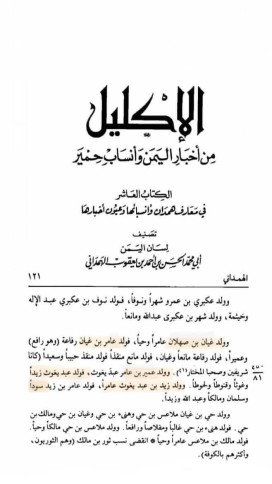 الإكليل
من أخبار اليمن وأنساب حمير
الكتاب العاشر
في معارف همدان وأنسابها وعيون أخبارها
تصنيف
لسان اليمن
أبي محمد الحسن بن أحمد بن يعقوب الهمداني
الهمداني ١٢١
وولد عكبري بن عمرو شهراً ونوفاً، فولد نوف بن عكبري عبد الإله
وخيثمة، وولد شهر بن عكبري عبدالله ومانعاً.
وولد غيان بن صهلان عامراً وحياً، فولد عامر بن غيان رفاعة (وهو رافع)
وعميراً، فولد رفاعة مانعاً وغيان، فولد مانع منقذاً فولد منقذ حبيباً وسعيداً (كانا
شريفين وصحبا المختار)، وولد عمير بن عامر عبد يغوث، فولد عبد يغوث زيداً
وغوثاً وقنوطاً ولحوطاً. وولد زيد بن عبد يغوث عامراً، فولد عامر بن زيد سوداً
وسلمان ومالكاً وعبد الله وزيداً.
وولد حي بن غيان ملاعس بن حي وهنيء بن حي وغيان بن حي ومالك بن
حي. فولد هنيء بن حي غالباً ومقلاصاً ورافعاً. وولد ملاعس بن حي مالكاً وحياً.
فولد مالك بن ملاعس عامراً وحياً * انقضى نسب ثور بن مالك (وهم الثوريون،
وأكثرهم بالكوفة).
٨١